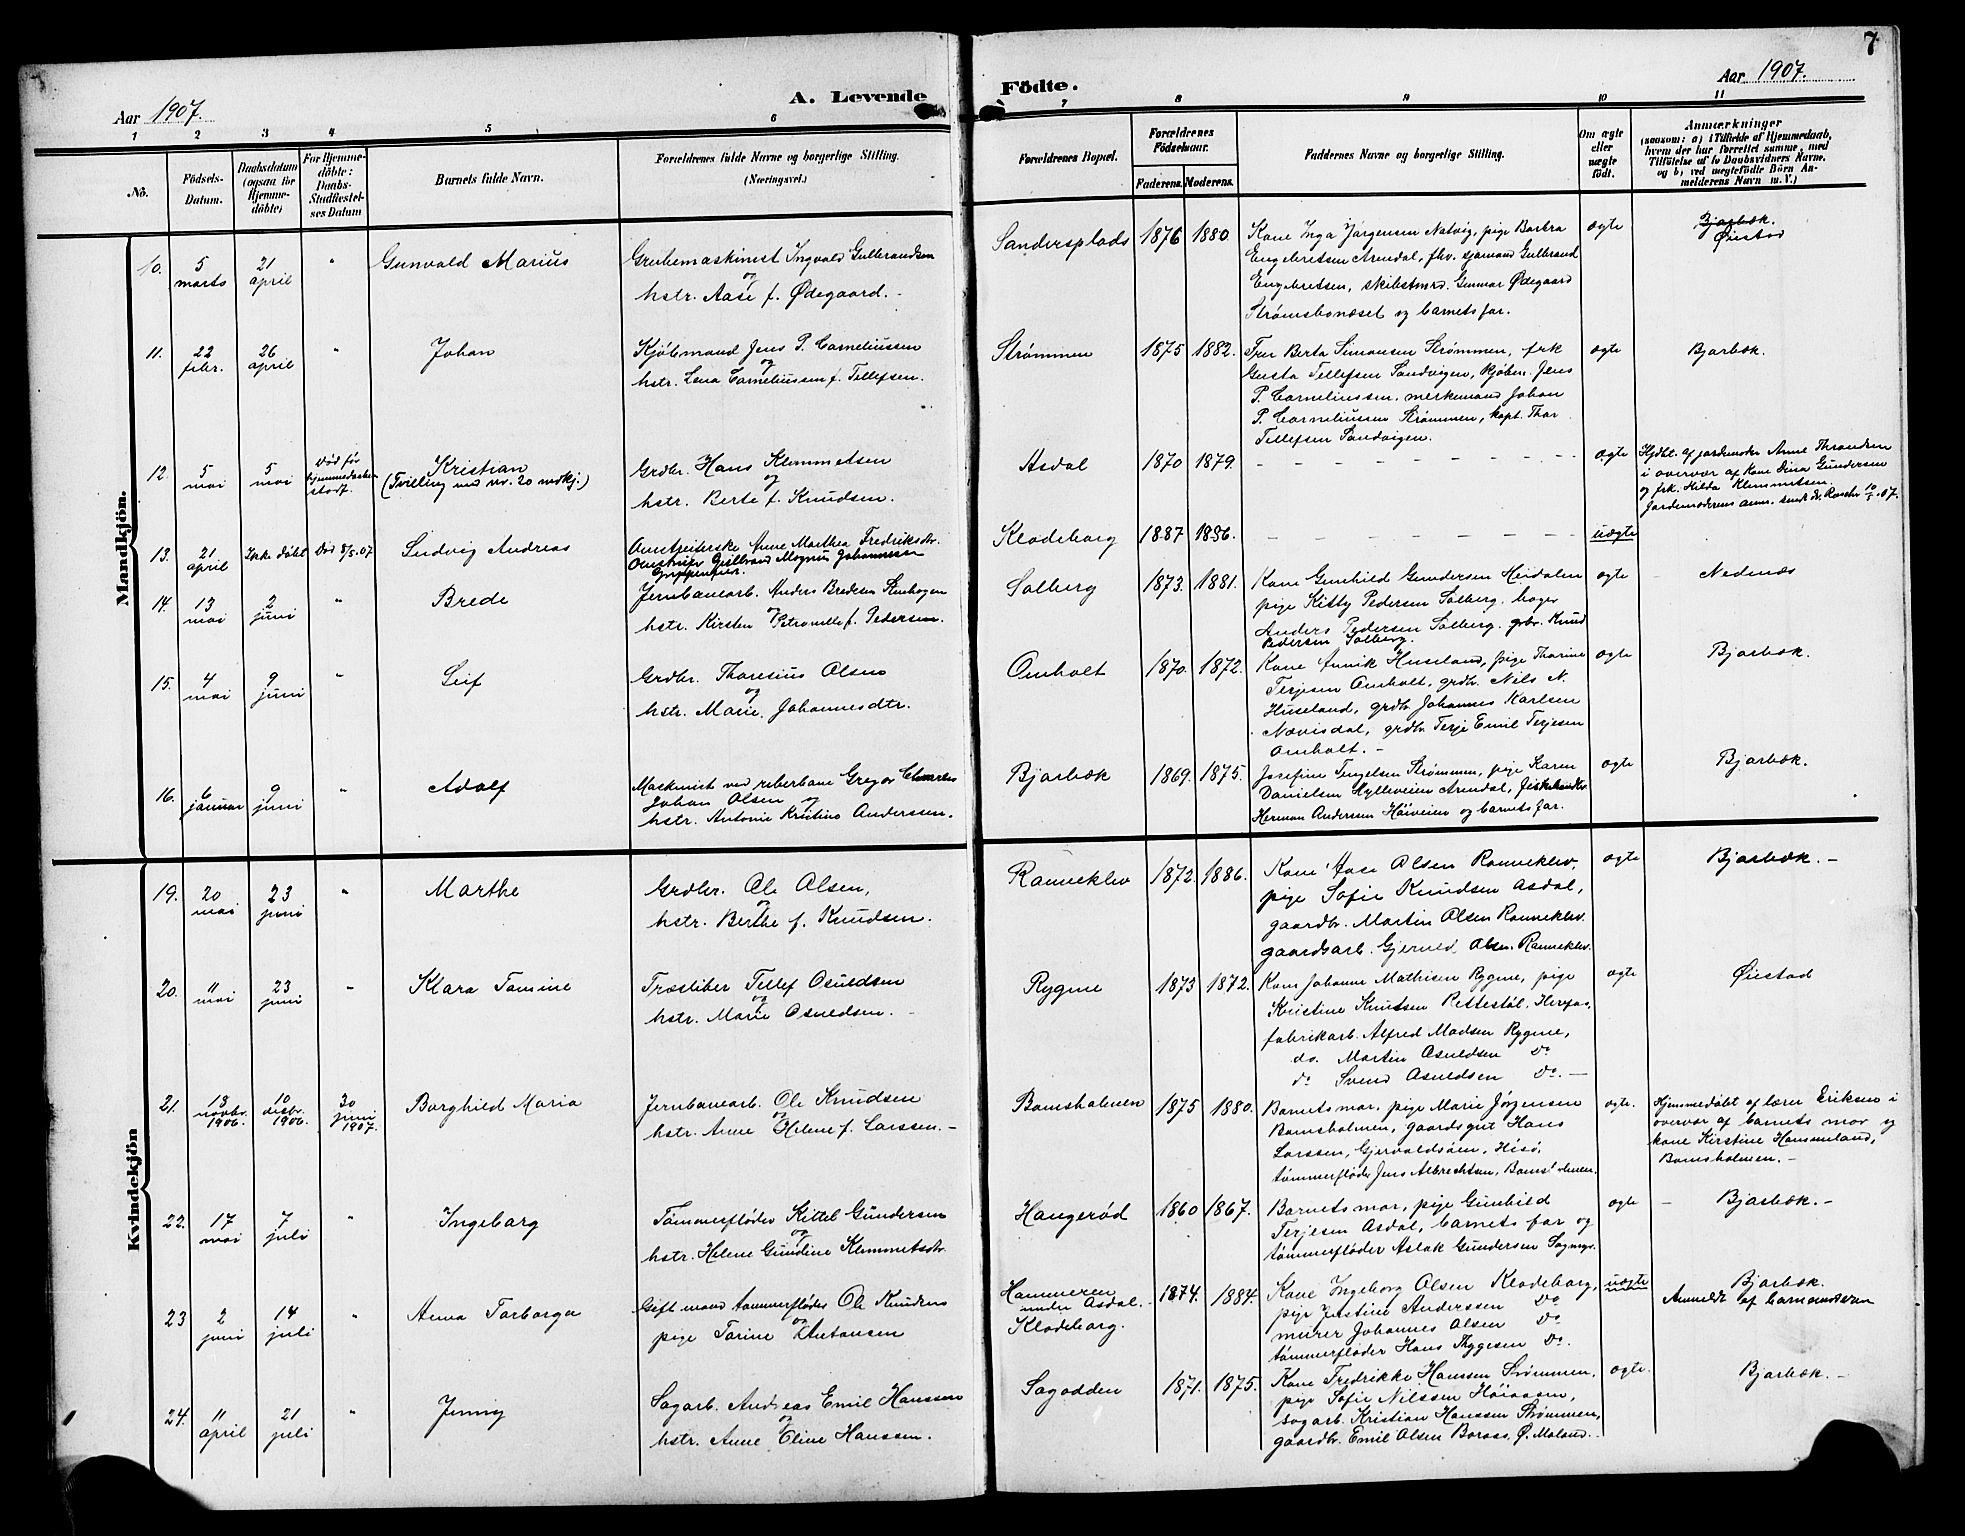 7
Aar 1907.
A. Levende
Födte.
Aar 1907.
1 2 3 4 5 6 7 8 9 10 11
No.
Födsels-
Datum.
Daabsdatum
(ogsaa for
Hjemme-
döbte)
For Hjemme-
döbte:
Daabs-
Stadfæstel-
ses Datum
Barnets fulde Navn.
Forældrenes fulde Navne og borgerlige Stilling.
(Næringsvei.)
Forældrenes Bopæl.
Forældrenes
Födselsaar.
Faderens. Moderens.
Faddernes Navne og borgerlige Stilling.
Om ægte
eller
uægte
födt.
Anmærkninger
(saasom: a) i Tilfælde af Hjemmedaab,
hvem der har forrettet samme, med
Tilföielse af to Daabsvidners Navne,
og b) ved uægtefödte Börn An-
melderens Navn m. V.)
Mandkjön.
10. 5 marts 21 april " Gunvald Marius
Grubemaskinist Ingvald Gulbrandsen
og
hstr. Aase f. Ødegaard. -
Sandersplads 1876 1880.
Kone Inga Jørgensen Natvig, pige Barbra
Engebretsen Arendal, fhv. sjømand Gulbrand
Engebretsen, skibstmrd. Gunnar Ødegaard
Strømsbonæset og barnets far.
ægte
Bjorbæk.
Øiestad
11. 22 febr. 26 april " Johan
Kjøbmand Jens P. Corneliussen
og
hstr. Lena Corneliussen f. Tellefsen.
Strømmen 1875 1882.
Fru Berta Simonsen Strømmen, frk
Gusta Tellefsen Sandvigen, kjøbm. Jens
P. Corneliussen, merkemand Johan
P. Corneliussen Strømmen, kapt. Thor
Tellefsen Sandvigen.
ægte
Bjorbæk.
12. 5 mai 5 mai Død før
hjemmedaaben
stadf. Kristian
(Tvilling med nr. 20 nedkj.)
Grdbr. Hans Klemmetsen
og
hstr. Berte f. Knudsen.
Asdal 1870 1879.
ægte
Hjdbt. af jordemoder Anne Throndsen
i overvær af kone Dina Gundersen
og frk. Hilda Klemmetsen.
13. 21 april Ikke døbt Død 8/5.07 Ludvig Andreas
Omstreiferske Anne Marthea Fredriksdtr.
Omstreifer Gulbrand Magnus Johannesen
Klodeborg 1887 1886.
uægte
14. 13 mai 2 juni " Brede
Jernbanearb. Anders Bredesen Stenhogen
og
hstr. Kirsten Petronelle f. Pedersen.
Solberg 1873. 1881.
Kone Gunhild Gundersen Heidalen
pige Kitty Pedersen Solberg, bager
Anders Pedersen Solberg, grbr. Knud
Pedersen Solberg.
ægte
Nedenæs
15. 4 mai 9 juni " Leif
Grdbr. Thoresius Olsen
og
hstr. Marie Johannesdtr.
Omholt 1870. 1872.
Kone Annik Huseland, pige Thorine
Terjesen Omholt, grdbr. Nils N.
Huseland, grdbr Johannes Karlsen
Nævisdal, grdbr Terje Emil Terjesen
Omholt. -
ægte
Bjorbæk.
16. 6 januar 9 juni " Adolf
Maskinist ved reberbane Gregor Charles
Johan Olsen og
hstr. Antonie Kristine Anderssen.
Bjorbæk 1869. 1875.
Josefine Tengelsen Strømmen, pige Karen
Danielsen Hylleveien Arendal, fiskehandler
Herman Andersen Høiveien og barnets far.
ægte
Bjorbæk.
Kvindekjön
19. 20 mai 23 juni " Marthe
Grdbr. Ole Olsen,
og
hstr. Berthe f. Knudsen.
Rannekleiv 1872. 1886.
Kone Aase Olsen Rannekleiv,
pige Sofie Knudsen Asdal,
gaardbr. Martin Olsen Rannekleiv.
gaardsarb. Gjeruld Olsen Rannekleiv.
ægte
Bjorbæk. -
20. 11 mai 23 juni " Klara Tomine
Træsliber Tellef Osuldsen
og
hstr. Marie Osuldsen. -
Rygene 1873 1872.
Kone Johanne Mathisen Rygene, pige
Kristine Knutsen Rettestøl, Herefos,
fabrikarb. Alfred Madsen Rygene,
do. Martin Osuldsen Do
do Svend Osuldsen Do. -
ægte
Øiestad
21. 13 novbr. 1906. 10 desbr. 1906. 30 juni 1907. Borghild Maria
Jernbanearb. Ole Knudsen
og
hstr. Anne Helene f. Larssen. -
Bomsholmen 1875 1880.
Barnets mor, pige Marie Jørgensen
Bomsholmen, gaardsgut Hans
Larssen, Gjervoldsøen, Hisø,
tømmerfløder Jens Albrechtsen, Bomsholmen.
ægte.
Hjemmedøbt af lærer Eriksen i
overvær af barnets mor og
kone Kirstine Hammeland,
Bomsholmen. -
22. 17 mai 7 juli " Ingeborg
Tømmerfløder Kittel Gundersen
og
hstr. Helene Gundine Klemmetsdtr.
Haugerød 1860 1867.
Barnets mor, pige Gunhild
Terjesen Asdal, barnets far og
tømmerfløder Aslak Gundersen
ægte
Bjorbæk. -
23 2 juni 14 juli " Anna Torborga
Gift mand tømmerfløder Ole Knudsen
og
pige Torine Antonsen
Hammeren
under Asdal.
Klodeborg. 1874. 1884.
Kone Ingeborg Olsen Klodeborg,
pige Justine Anderssen Do
murer Johannes Olsen Do
tømmerfløder Hans Thygesen Do.
uægte
Bjorbæk.
Anmeldt af barnemoderen
24. 11 april 21 juli " Jenny
Sagarb. Andreas Emil Hanssen
og
hstr. Anne Eline Hanssen.
Sagodden 1871. 1875.
Kone Fredrikke Hansen Strømmen,
pige Sofie Nilssen Høiaasen,
sagarb. Kristian Hanssen Strømmen,
gaardbr. Emil Olsen Boraas, Ø. Moland. -
ægte.
Bjorbæk. -